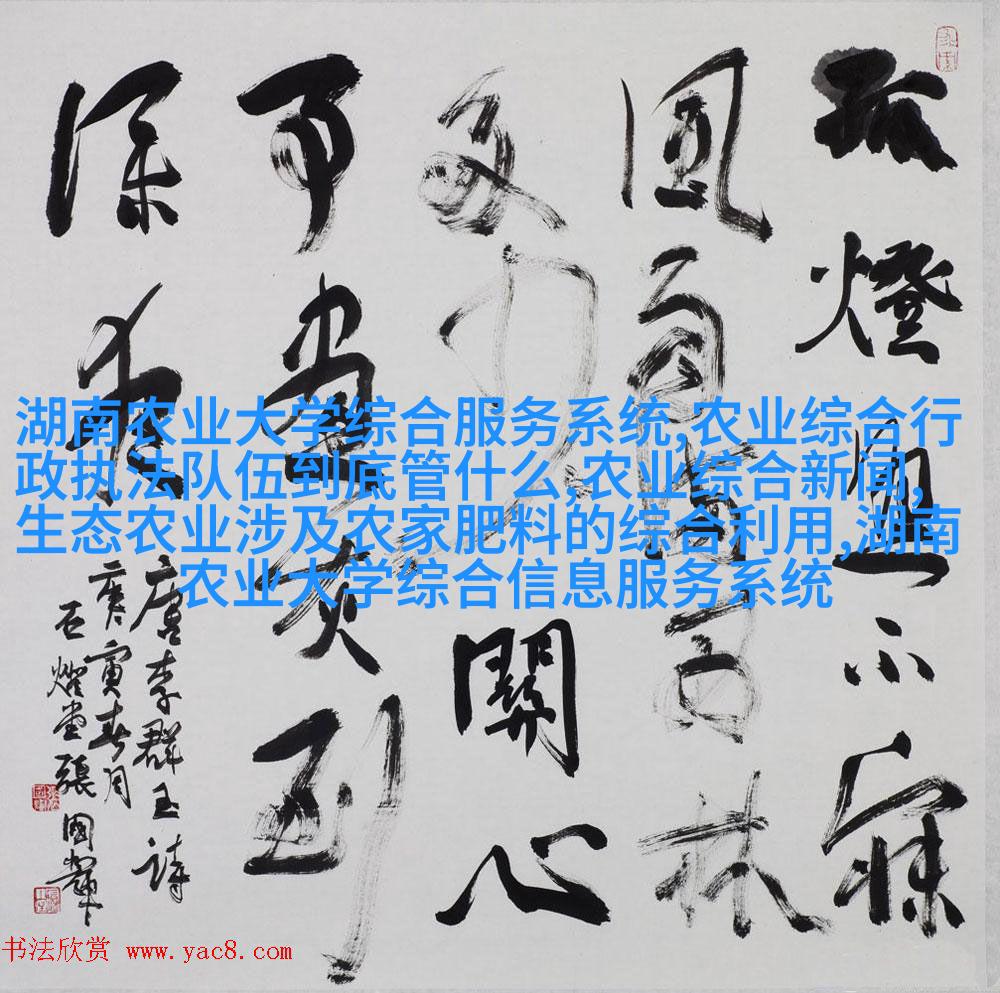 孤燈照不寐
風雨滿西林
多少關心
事書灰到
深夜
唐李群玉詩
庚寅春月
石燈堂張國輝
湖南农业大学综合服务系统,农业综合行
政执法队伍到底管什么,农业综合新闻,
生态农业涉及农家肥料的综合利用,湖南
农业大学综合信息服务系统
书法欣赏 www.yac8.com